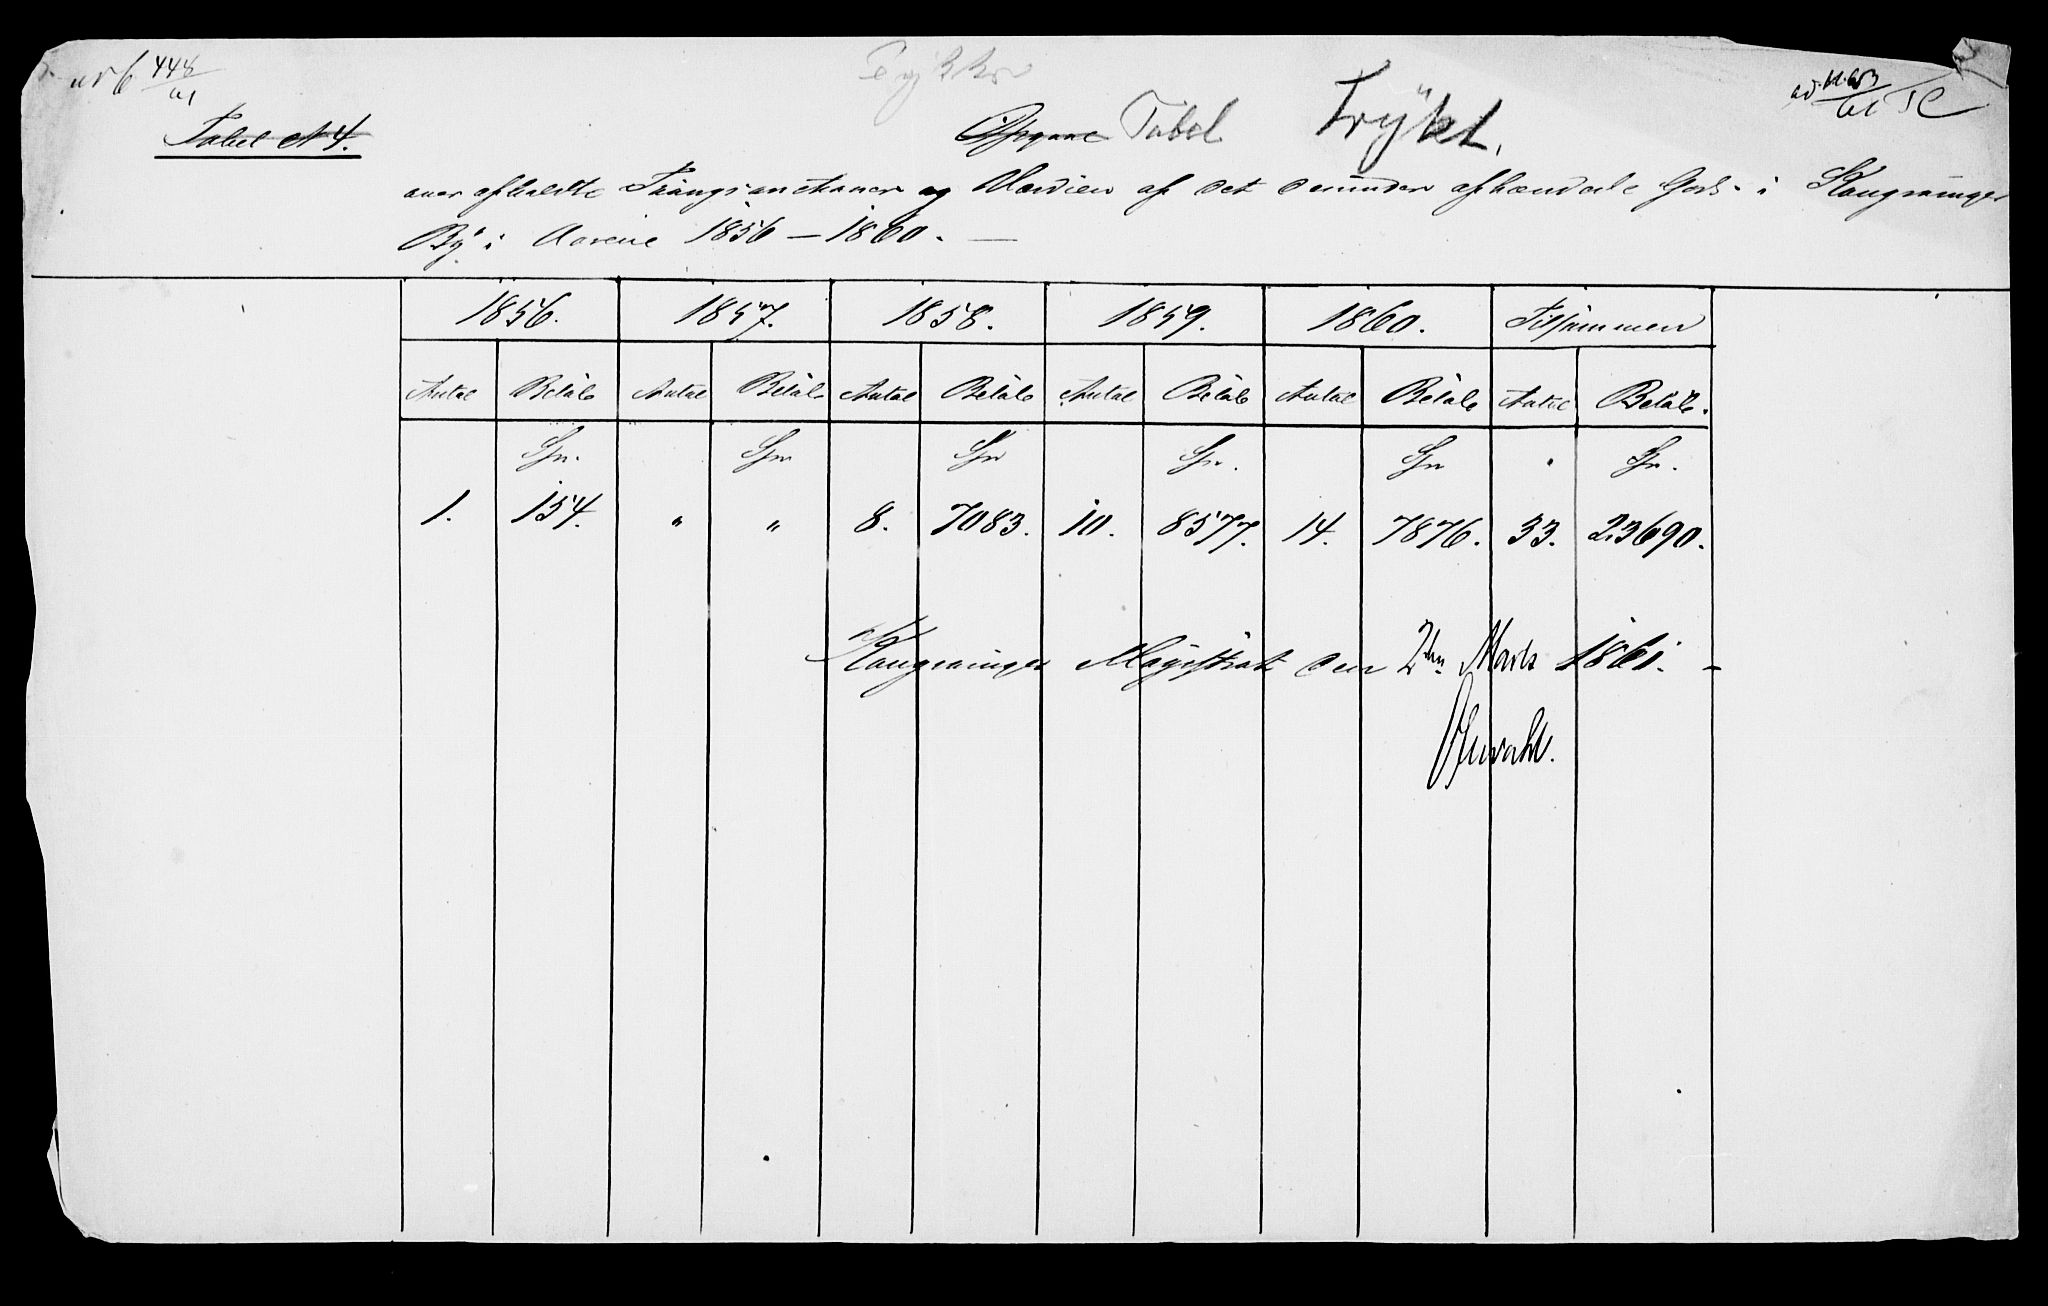 nr 6 448/61
Trykt.
Tabel N 4.
Opgave Tabel
over afholdte Tvangsauctioner og Værdien af det derunder afhændede Gods i Kongsvinger
By i Aarene 1856 – 1860. –
1856. 1857. 1858. 1859. 1860. Tilsammen
Antal Beløb Antal Beløb Antal Beløb Antal Beløb Antal Beløb Antal Beløb.
Spd. Spd Spd Spd. Spd Spd.
1. 154. " " 8. 7083. 10. 8577. 14. 7876. 33. 23690.
Kongsvinger Magistrat den 2den Marts 1861. –